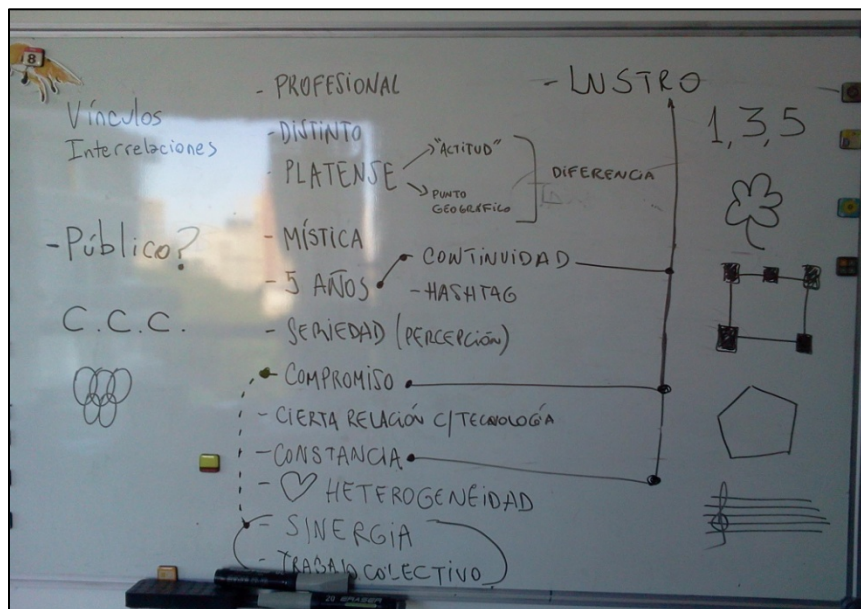 8
Vínculos
Interrelaciones
- Público?
C.C.C.
- PROFESIONAL
- DISTINTO
- PLATENSE
"ACTITUD"
PUNTO
GEOGRÁFICO
DIFERENCIA
- MÍSTICA
- 5 AÑOS
- CONTINUIDAD
- HASHTAG
- SERIEDAD (PERCEPCIÓN)
- COMPROMISO
- CIERTA RELACIÓN C/TECNOLOGÍA
- CONSTANCIA
- ♡ HETEROGENEIDAD
- SINERGIA
- TRABAJO COLECTIVO
- LUSTRO
1, 3, 5
20 ERASER